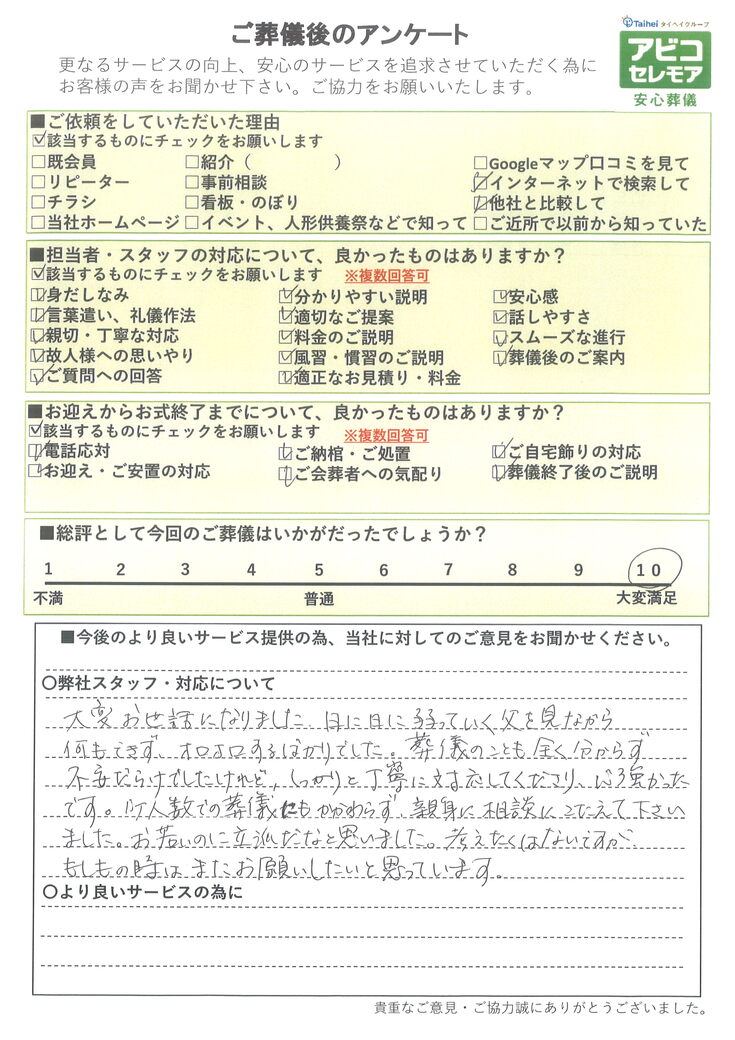 ご葬儀後のアンケート
Taihei タイヘイグループ
アビコ
セレモア
安心葬儀
更なるサービスの向上、安心のサービスを追求させていただく為に
お客様の声をお聞かせ下さい。ご協力をお願いいたします。
■ご依頼をしていただいた理由
☑該当するものにチェックをお願いします
□既会員 □紹介（ ） □Googleマップ口コミを見て
□リピーター □事前相談 ☑インターネットで検索して
□チラシ □看板・のぼり ☑他社と比較して
□当社ホームページ □イベント、人形供養祭などで知って □ご近所で以前から知っていた
■担当者・スタッフの対応について、良かったものはありますか？
☑該当するものにチェックをお願いします ※複数回答可
☑身だしなみ ☑分かりやすい説明 ☑安心感
☑言葉遣い、礼儀作法 ☑適切なご提案 ☑話しやすさ
☑親切・丁寧な対応 ☑料金のご説明 ☑スムーズな進行
☑故人様への思いやり ☑風習・慣習のご説明 ☑葬儀後のご案内
☑ご質問への回答 ☑適正なお見積り・料金
■お迎えからお式終了までについて、良かったものはありますか？
☑該当するものにチェックをお願いします ※複数回答可
☑電話応対 ☑ご納棺・ご処置 ☑ご自宅飾りの対応
☑お迎え・ご安置の対応 ☑ご会葬者への気配り ☑葬儀終了後のご説明
■総評として今回のご葬儀はいかがだったでしょうか？
1 2 3 4 5 6 7 8 9 10
不満 普通 大変満足
■今後のより良いサービス提供の為、当社に対してのご意見をお聞かせください。
〇弊社スタッフ・対応について
大変お世話になりました。日に日に弱っていく父を見ながら
何もできず、オロオロするばかりでした。葬儀のことも全く分からず
不安だらけでしたけれど、しっかりと丁寧に対応してくださり、心強かった
です。少人数での葬儀にもかかわらず、親身に相談にこたえて下さい
ました。お若いのに立派だなと思いました。考えたくはないですが、
もしもの時はまたお願いしたいと思っています。
〇より良いサービスの為に
貴重なご意見・ご協力誠にありがとうございました。